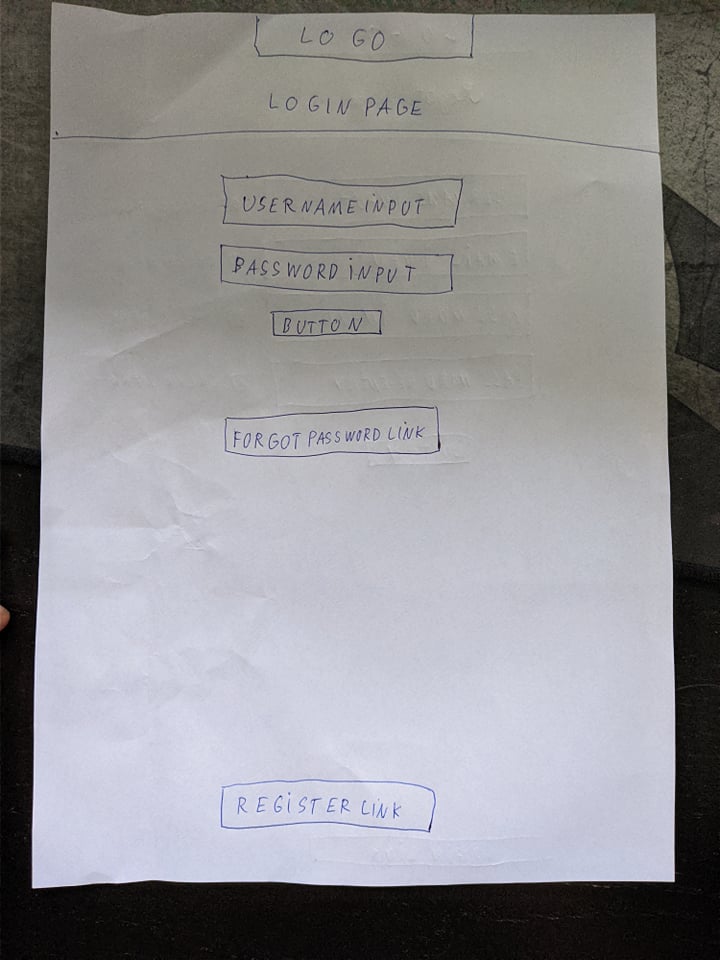 LOGO
LOGIN PAGE
USERNAME INPUT
PASSWORD INPUT
BUTTON
FORGOT PASSWORD LINK
REGISTER LINK